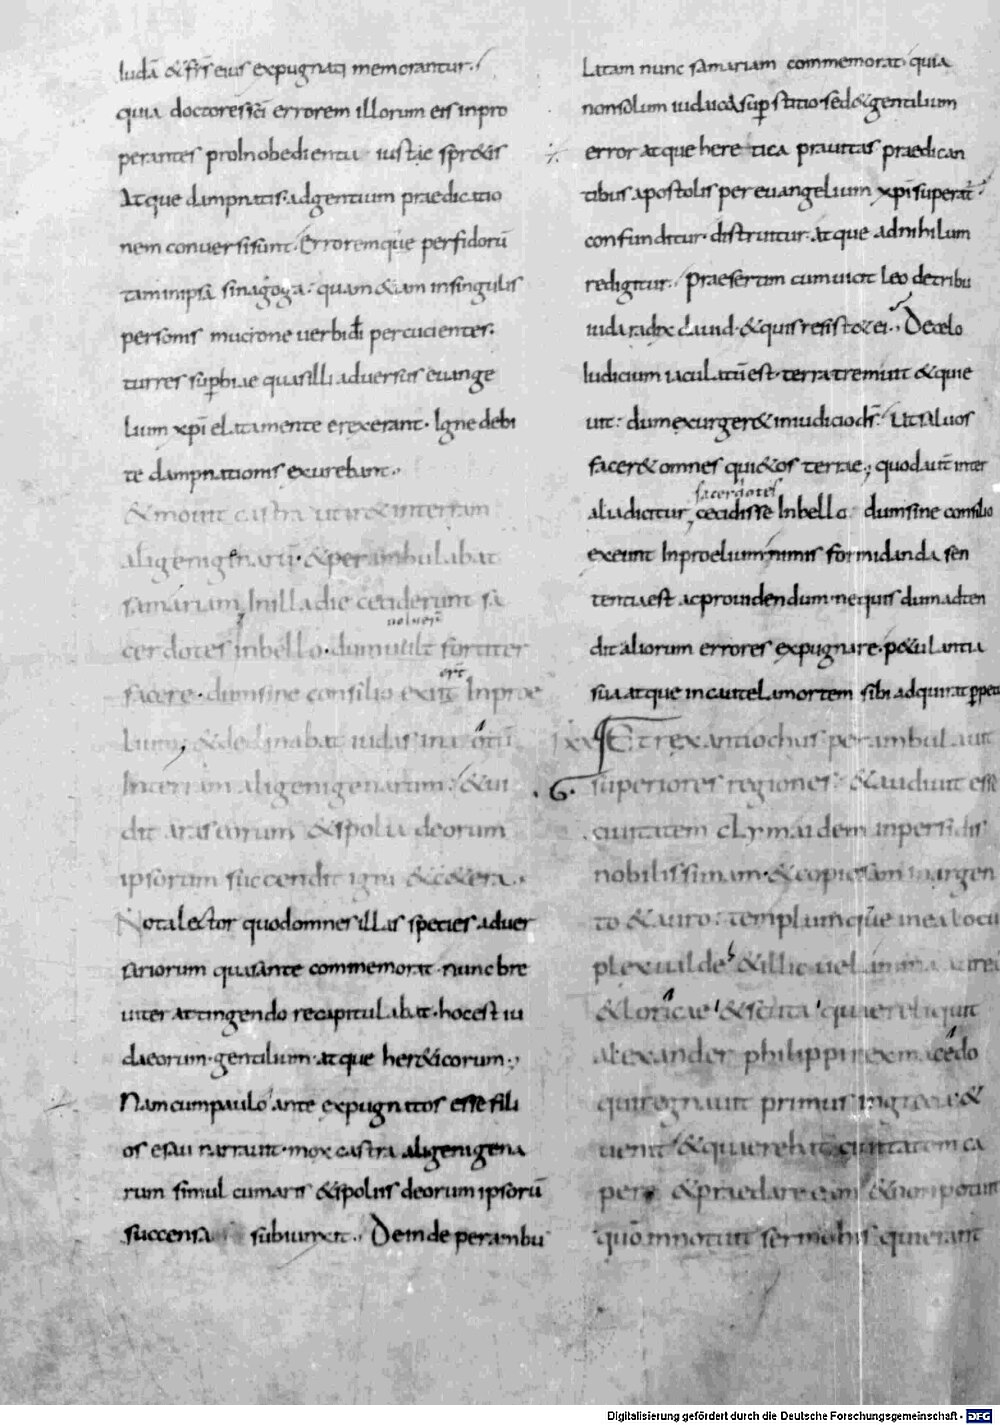 Iudā & frs̄ eius expugnati memorantur.
quia doctores sc̄i errorem illorum eis inpro
perantes pro Inobedientia iustāe spr&is
Atque dampnatis. ad gentium praedicatio
nem conversi sunt. Erroremque perfidorū
tam in ipsa sinagoga: quam &iam in singulis
personis mucrone uerbi dī percucientes.
turres supbiae quas illi adversus euange
lium xp̄i elatamente erexerant. Igne debi
te dampnationis exurebant.
& mouit castra ut ir& in terram
aligenigenarū. & perambulabat
samariam, In illa die ceciderunt sa
cerdotes in bello. dum uult fortiter
uoluer̄
facere. dum sine consilio exiit In proe
ert̄
lium; & declinabat iudas in azotū
In terram aligenigenarum. & ui
dit aras eorum & spolia deorum
ipsorum succendit igni & c&era.
Nota lector quod omnes illas species aduer
sariorum quas ante commemorat. nunc bre
uiter attingendo recapitulabat. hoc est iu
daeorum. gentilium. atque her&icorum;
Nam cum paulo ante expugnatos esse fili
os esau narrauit. mox castra aligenigena
rum simul cum aris & spoliis deorum ipsorū
succensa subiunxit. Deinde perambu
latam nunc samariam commemorat. quia
non solum iudaica sup stitio. sed & gentilium
error atque heretica prauitas praedican
tibus apostolis per euangelium xp̄i superat̄
confunditur. distruitur. atque ad nihilum
redigitur. Praesertim cum uicit Leo de tribu
iuda radix dauid. & quis resistat ei. De celo
Iudicium iaculatū est. terra tremuit & quie
uit: dum exurger& in iudicio ds̄. Ut saluos
facer& omnes qui&os terrae; quod aut̄ inter
sacerdotes
alia dicitur, cecidisse In bello dum sine consilio
exeunt In proelium nimis formidanda sen
tentia est ac prouidendum. ne quis dum adten
dit aliorum errores expugnare. p&ulantia
sua atque incautela mortem sibi adquirat ppetu
Et rex antiochus perambulauit
.G. superiores regiones. & audiuit esse
ciuitatem elymaidem in persidis
nobilissimam. & copiosam in argen
to & auro: templumque in ea locu
plex ualde & illic uelamina aurei
& loricae & scuta quae reliquit
alexander philippi rex macedo
qui regnauit primus in grecia. &
uenit & quaerebat ciuitatem ca
pere & praedare eam & non potuit
quō innotuit sermo his qui erant